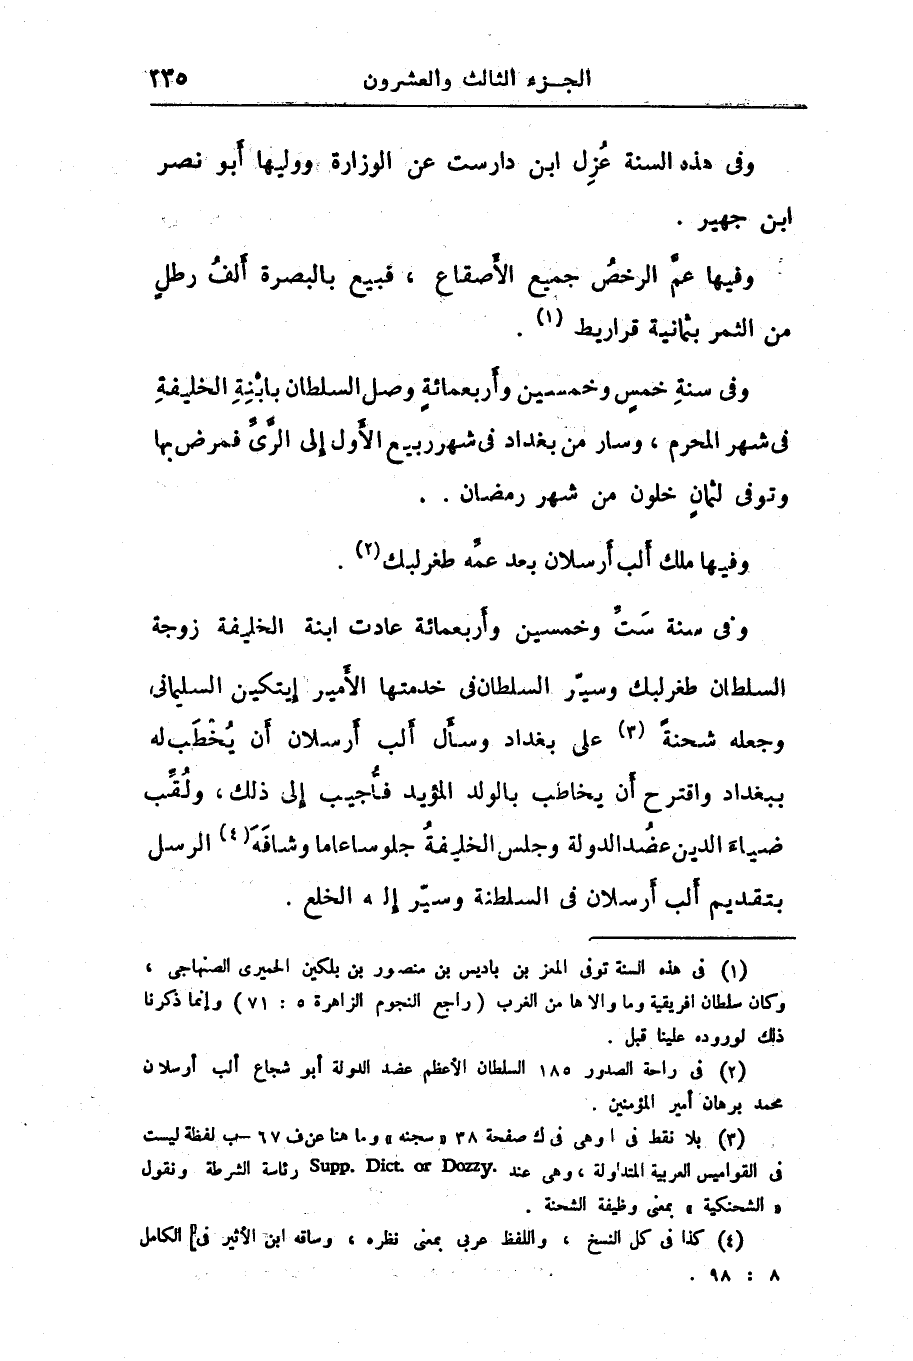 الجزء الثالث والعشرون ٢٣٥
وفى هذه السنة عُزِل ابن دارست عن الوزارة ووليها أَبو نصر
ابن جهير .
وفيها عمَّ الرخصُ جميع الأَصقاع ، فبيع بالبصرة أَلفُ رطلٍ
من التمر بثمانية قراريط (١) .
وفى سنةِ خمسٍ وخمسين وأَربعمائةٍ وصل السلطان بابْنِةِ الخليفةِ
فى شهر المحرم ، وسار من بغداد فى شهر ربيع الأَول إلى الرَّىِّ فمرض بها
وتوفى لثمانٍ خلون من شهر رمضان . .
وفيها ملك أَلب أَرسلان بعد عمِّه طغرلبك (٢) .
وفى سنة سَتٍّ وخمسين وأَربعمائة عادت ابنة الخليفة زوجة
السلطان طغرلبك وسيّر السلطان فى خدمتها الأَمير إيتكين السليمانى،
وجعله شحنةً (٣) على بغداد وسأَل أَلب أَرسلان أَن يُخْطَب له
ببغداد واقترح أَن يخاطب بالولد المؤيد فأُجيب إلى ذلك ، ولُقِّب
ضياء الدين عضُد الدولة وجلس الخليفةُ جلوسا عاما وشافَهَ (٤) الرسل
بتقديم أَلب أَرسلان فى السلطنة وسيّر إليه الخلع .
(١) فى هذه السنة توفى المعز بن باديس بن منصور بن بلكين الحميرى الصنهاجى ،
وكان سلطان افريقية وما والاها من الغرب ( راجع النجوم الزاهرة ٥ : ٧١ ) وإنما ذكرنا
ذلك لوروده علينا قبل .
(٢) فى راحة الصدور ١٨٥ السلطان الأعظم عضد الدولة أبو شجاع ألب أرسلان
محمد برهان أمير المؤمنين .
(٣) بلا نقط فى ا وهى فى ك صفحة ٣٨ « سجنه » وما هنا عن ف ٦٧ –ب لفظة ليست
فى القواميس العربية المتداولة ، وهى عند Supp. Dict. or Dozzy. رئاسة الشرطة ونقول
« الشحنكية » بمعنى وظيفة الشحنة .
(٤) كذا فى كل النسخ ، واللفظ عربى بمعنى نظره ، وساقه ابن الأثير فى] الكامل
٨ : ٩٨ .